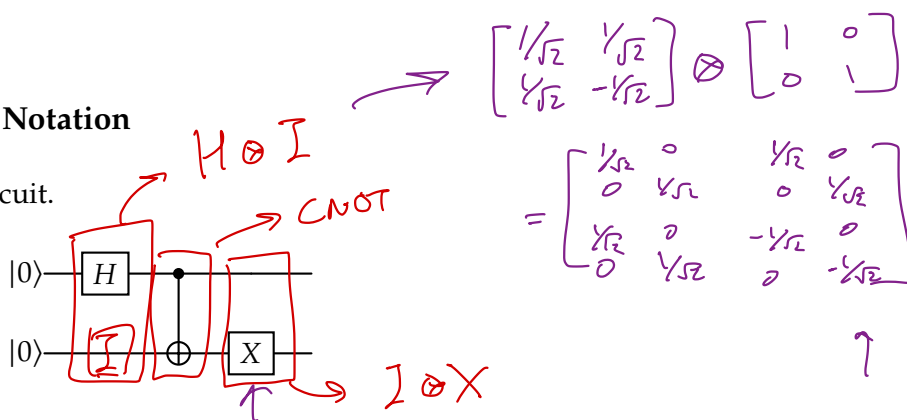 Notation
cuit.
H ⊗ I
CNOT
|0⟩ H
|0⟩ I X
I ⊗ X
[ 1/√2 1/√2 ] ⊗ [ 1 0 ]
[ 1/√2 -1/√2 ] [ 0 1 ]
= [ 1/√2 0 1/√2 0 ]
[ 0 1/√2 0 1/√2 ]
[ 1/√2 0 -1/√2 0 ]
[ 0 1/√2 0 -1/√2 ]